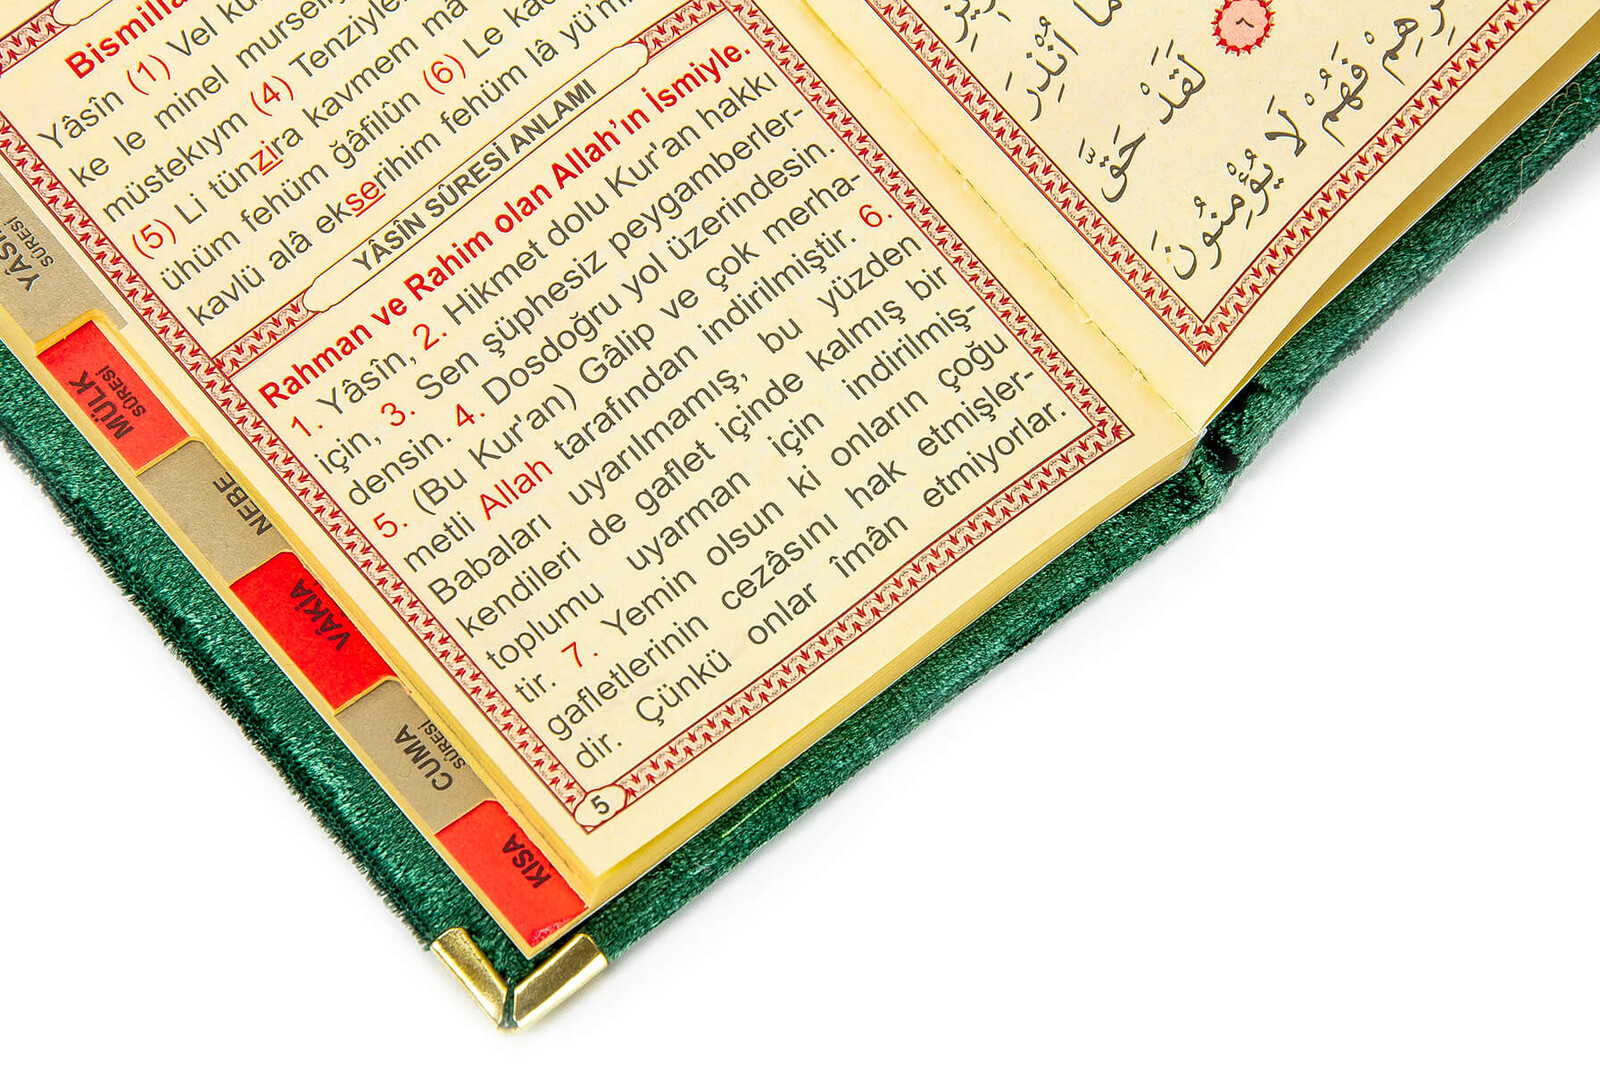 Bismilla
Yâsîn (1) Vel ku
ke le minel mursely
müstekıym (4) Tenziyle
(5) Li tünzira kavmem mâ
ühüm fehüm ğâfilûn (6) Le kad
kavlü alâ ekserihim fehüm lâ yü'mi
YÂSÎN SÛRESİ ANLAMI
Rahman ve Rahim olan Allah'ın İsmiyle.
1. Yâsîn, 2. Hikmet dolu Kur'an hakkı
için, 3. Sen şüphesiz peygamberler-
densin. 4. Dosdoğru yol üzerindesin.
5. (Bu Kur'an) Gâlip ve çok merha-
metli Allah tarafından indirilmiştir. 6.
Babaları uyarılmamış, bu yüzden
kendileri de gaflet içinde kalmış bir
toplumu uyarman için indirilmiş-
tir. 7. Yemin olsun ki onların çoğu
gafletlerinin cezâsını hak etmişler-
dir. Çünkü onlar îmân etmiyorlar.
5
YÂS
SÛRESİ
MÜLK
SÛRESİ
NEBE
VÂKIA
CUMA
SÛRESİ
KISA
مَا أُنْذِرَ
٦
لَقَدْ حَقَّ
فَهُمْ لَا يُؤْمِنُونَ